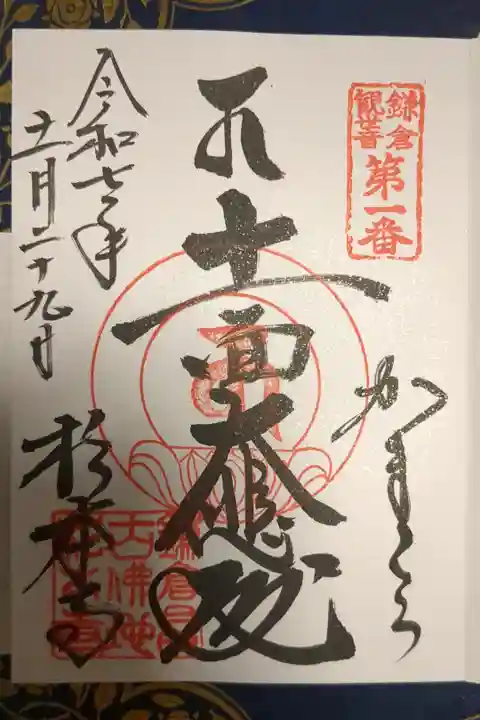 鎌倉
観音
第一番
かまくら
十一面大悲殿
令和七年
十一月二十九日
杉本寺
鎌倉最
古佛地